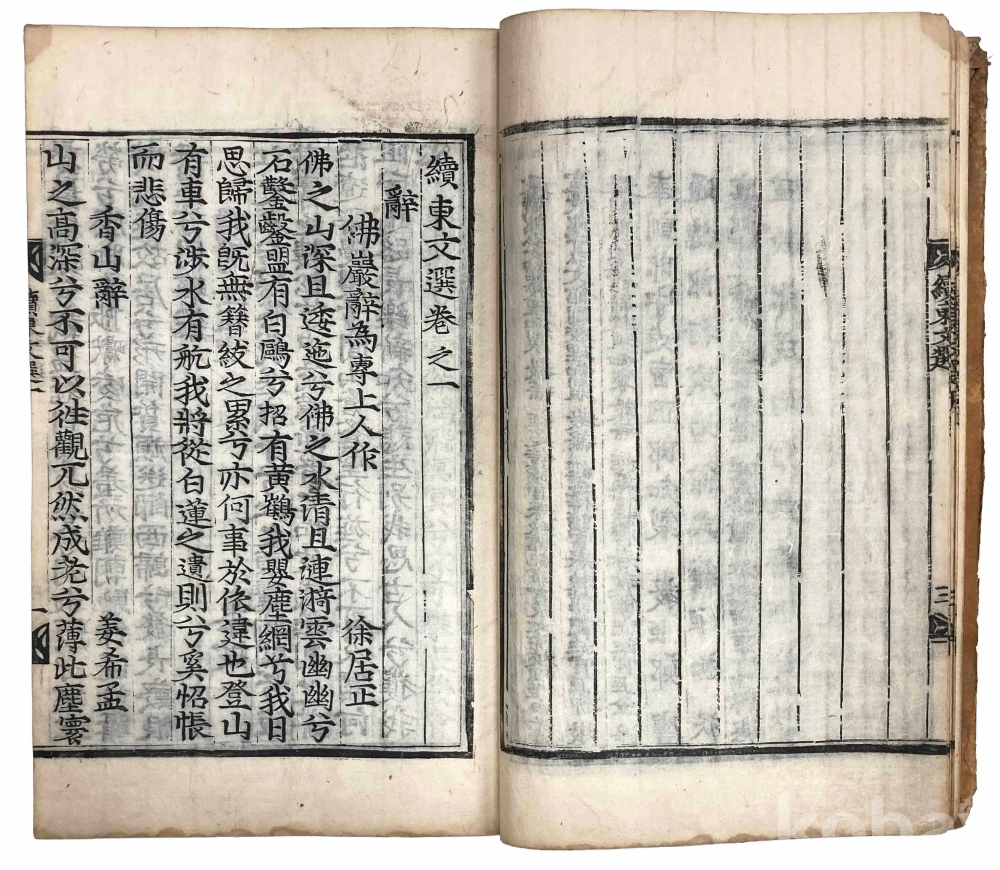 續東文選卷之一
辭
佛巖辭為專上人作 徐居正
佛之山深且逶迤兮佛之水清且漣漪雲幽幽兮
石鑿鑿盟有白鷗兮招有黃鶴我嬰塵網兮我日
思歸我旣無簪紱之累兮亦何事於依違也登山
有車兮涉水有航我將從白蓮之遺則兮奚怊悵
而悲傷
香山辭 姜希孟
山之高深兮不可以徃觀兀然成老兮薄此塵寰
續東文選一
一
續東文選
三